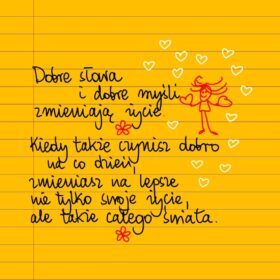 Dobre słowa
i dobre myśli
zmieniają życie.
Kiedy także czynisz dobro
na co dzień,
zmieniasz na lepsze
nie tylko swoje życie,
ale także całego świata.